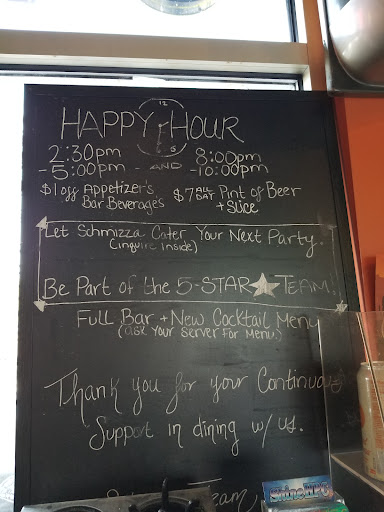 HAPPY HOUR
12
5
2:30pm
-5:00pm - AND - 8:00pm
-10:00pm
$1 off Appetizer's
Bar Beverages
$7 ALL DAY Pint of Beer
+ Slice
Let Schmizza Cater Your Next Party.
(inquire inside)
Be Part of the 5-STAR TEAM!
Full Bar + New Cocktail Menu
(ask Your Server For Menu.)
Thank you for your Continuous
Support in dining w/ us.
Team